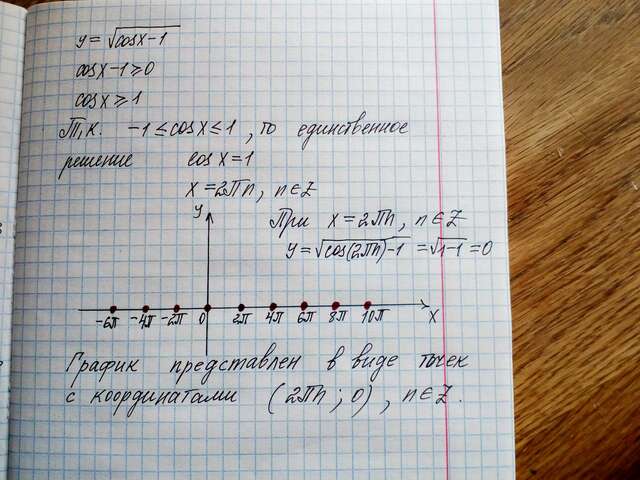 y = √(cosx-1)
cosx-1 ≥ 0
cosx ≥ 1
Т.к. -1 ≤ cosx ≤ 1, то единственное
решение cosx = 1
x = 2πn, n∈Z
y
При x = 2πn, n∈Z
y = √(cos(2πn)-1) = √(1-1) = 0
-6π -4π -2π 0 2π 4π 6π 8π 10π x
График представлен в виде точек
с координатами (2πn; 0), n∈Z.